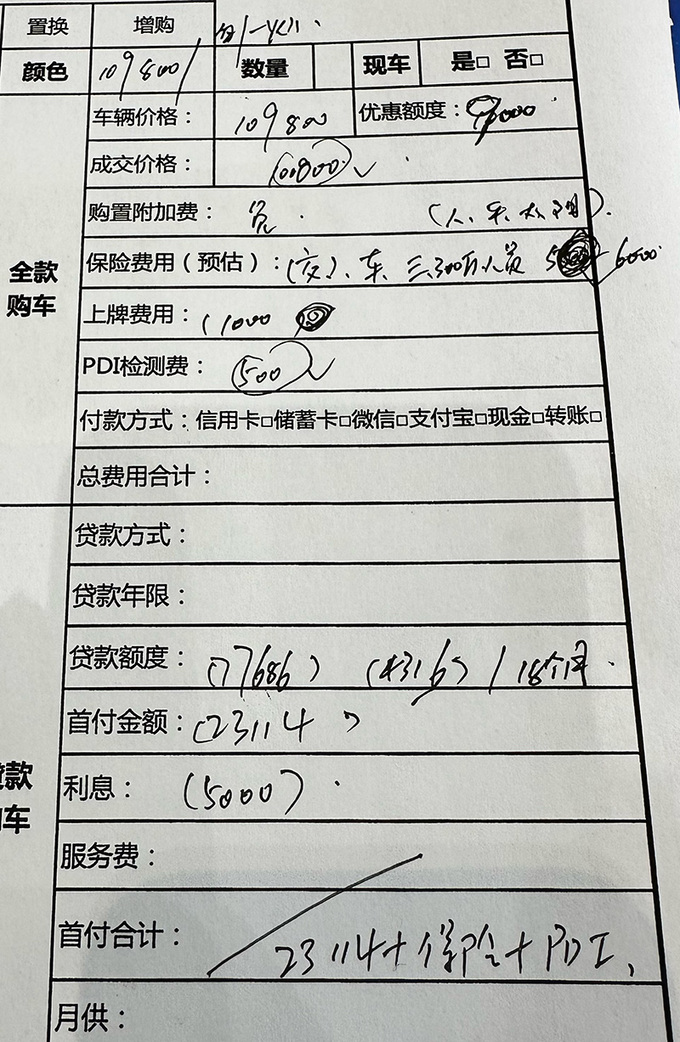 置换 增购
颜色 109800 数量 现车 是□ 否□
车辆价格： 109800 优惠额度： 9000
成交价格： 100800
购置附加费： 免
全款购车
保险费用（预估）：（交）、车、三300万 人员 6000
上牌费用： 1000
PDI检测费： 500
付款方式：信用卡□储蓄卡□微信□支付宝□现金□转账□
总费用合计：
贷款方式：
贷款年限：
贷款额度：（77686）（4316）/ 18个月
首付金额：（23114）
款
车
利息：（5000）
服务费：
首付合计： 23114+保险+PDI
月供：